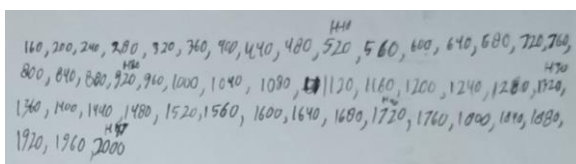 160, 200, 240, 280, 320, 360, 400, 440, 480, 520, 560, 600, 640, 680, 720, 760,
800, 840, 880, 920, 960, 1000, 1040, 1080, 1120, 1160, 1200, 1240, 1280, 1320,
1360, 1400, 1440, 1480, 1520, 1560, 1600, 1640, 1680, 1720, 1760, 1800, 1840, 1880,
1920, 1960, 2000